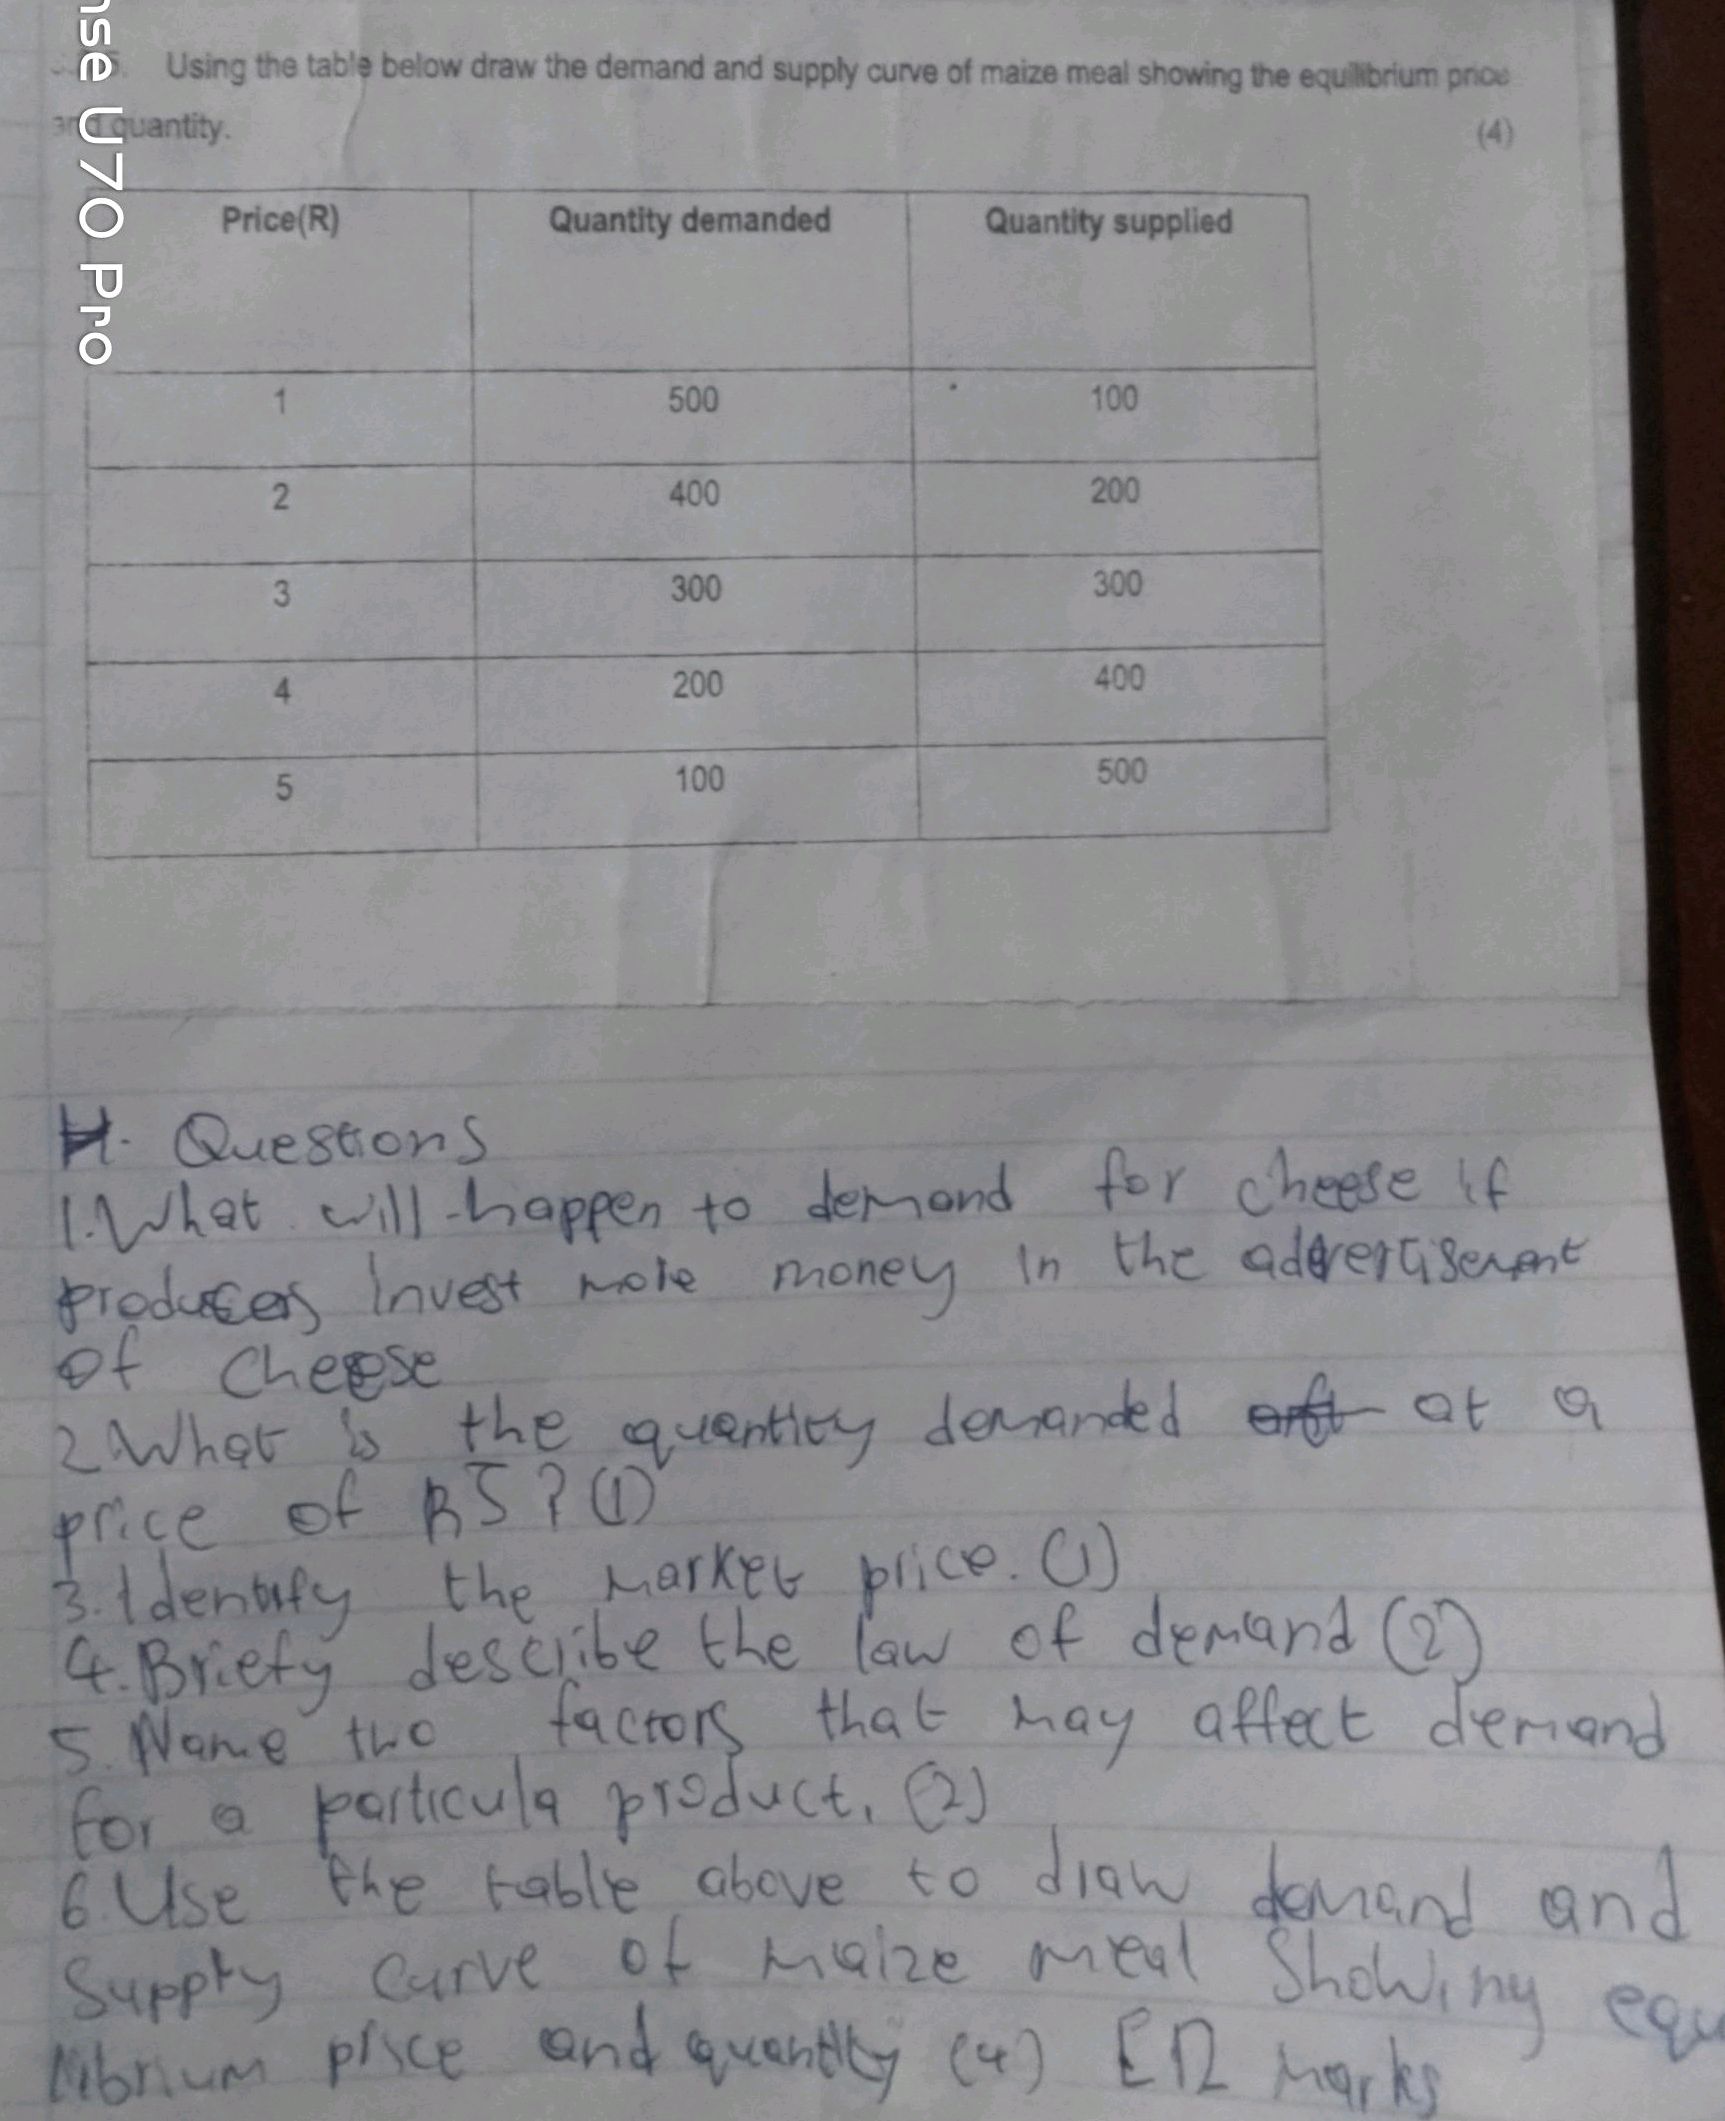 nse U70 Pro
5. Using the table below draw the demand and supply curve of maize meal showing the equilibrium price
and quantity. (4)
Price(R) Quantity demanded Quantity supplied
1 500 100
2 400 200
3 300 300
4 200 400
5 100 500
H. Questions
1. What will happen to demand for cheese if
producers invest more money in the advertisement
of cheese
2. What is the quantity demanded at a
price of R5? (1)
3. Identify the market price. (1)
4. Briefy describe the law of demand (2)
5. Name two factors that may affect demand
for a particula product. (2)
6. Use the table above to draw demand and
Supply curve of maize meal Showing equ
librium price and quantity (4) [12 marks